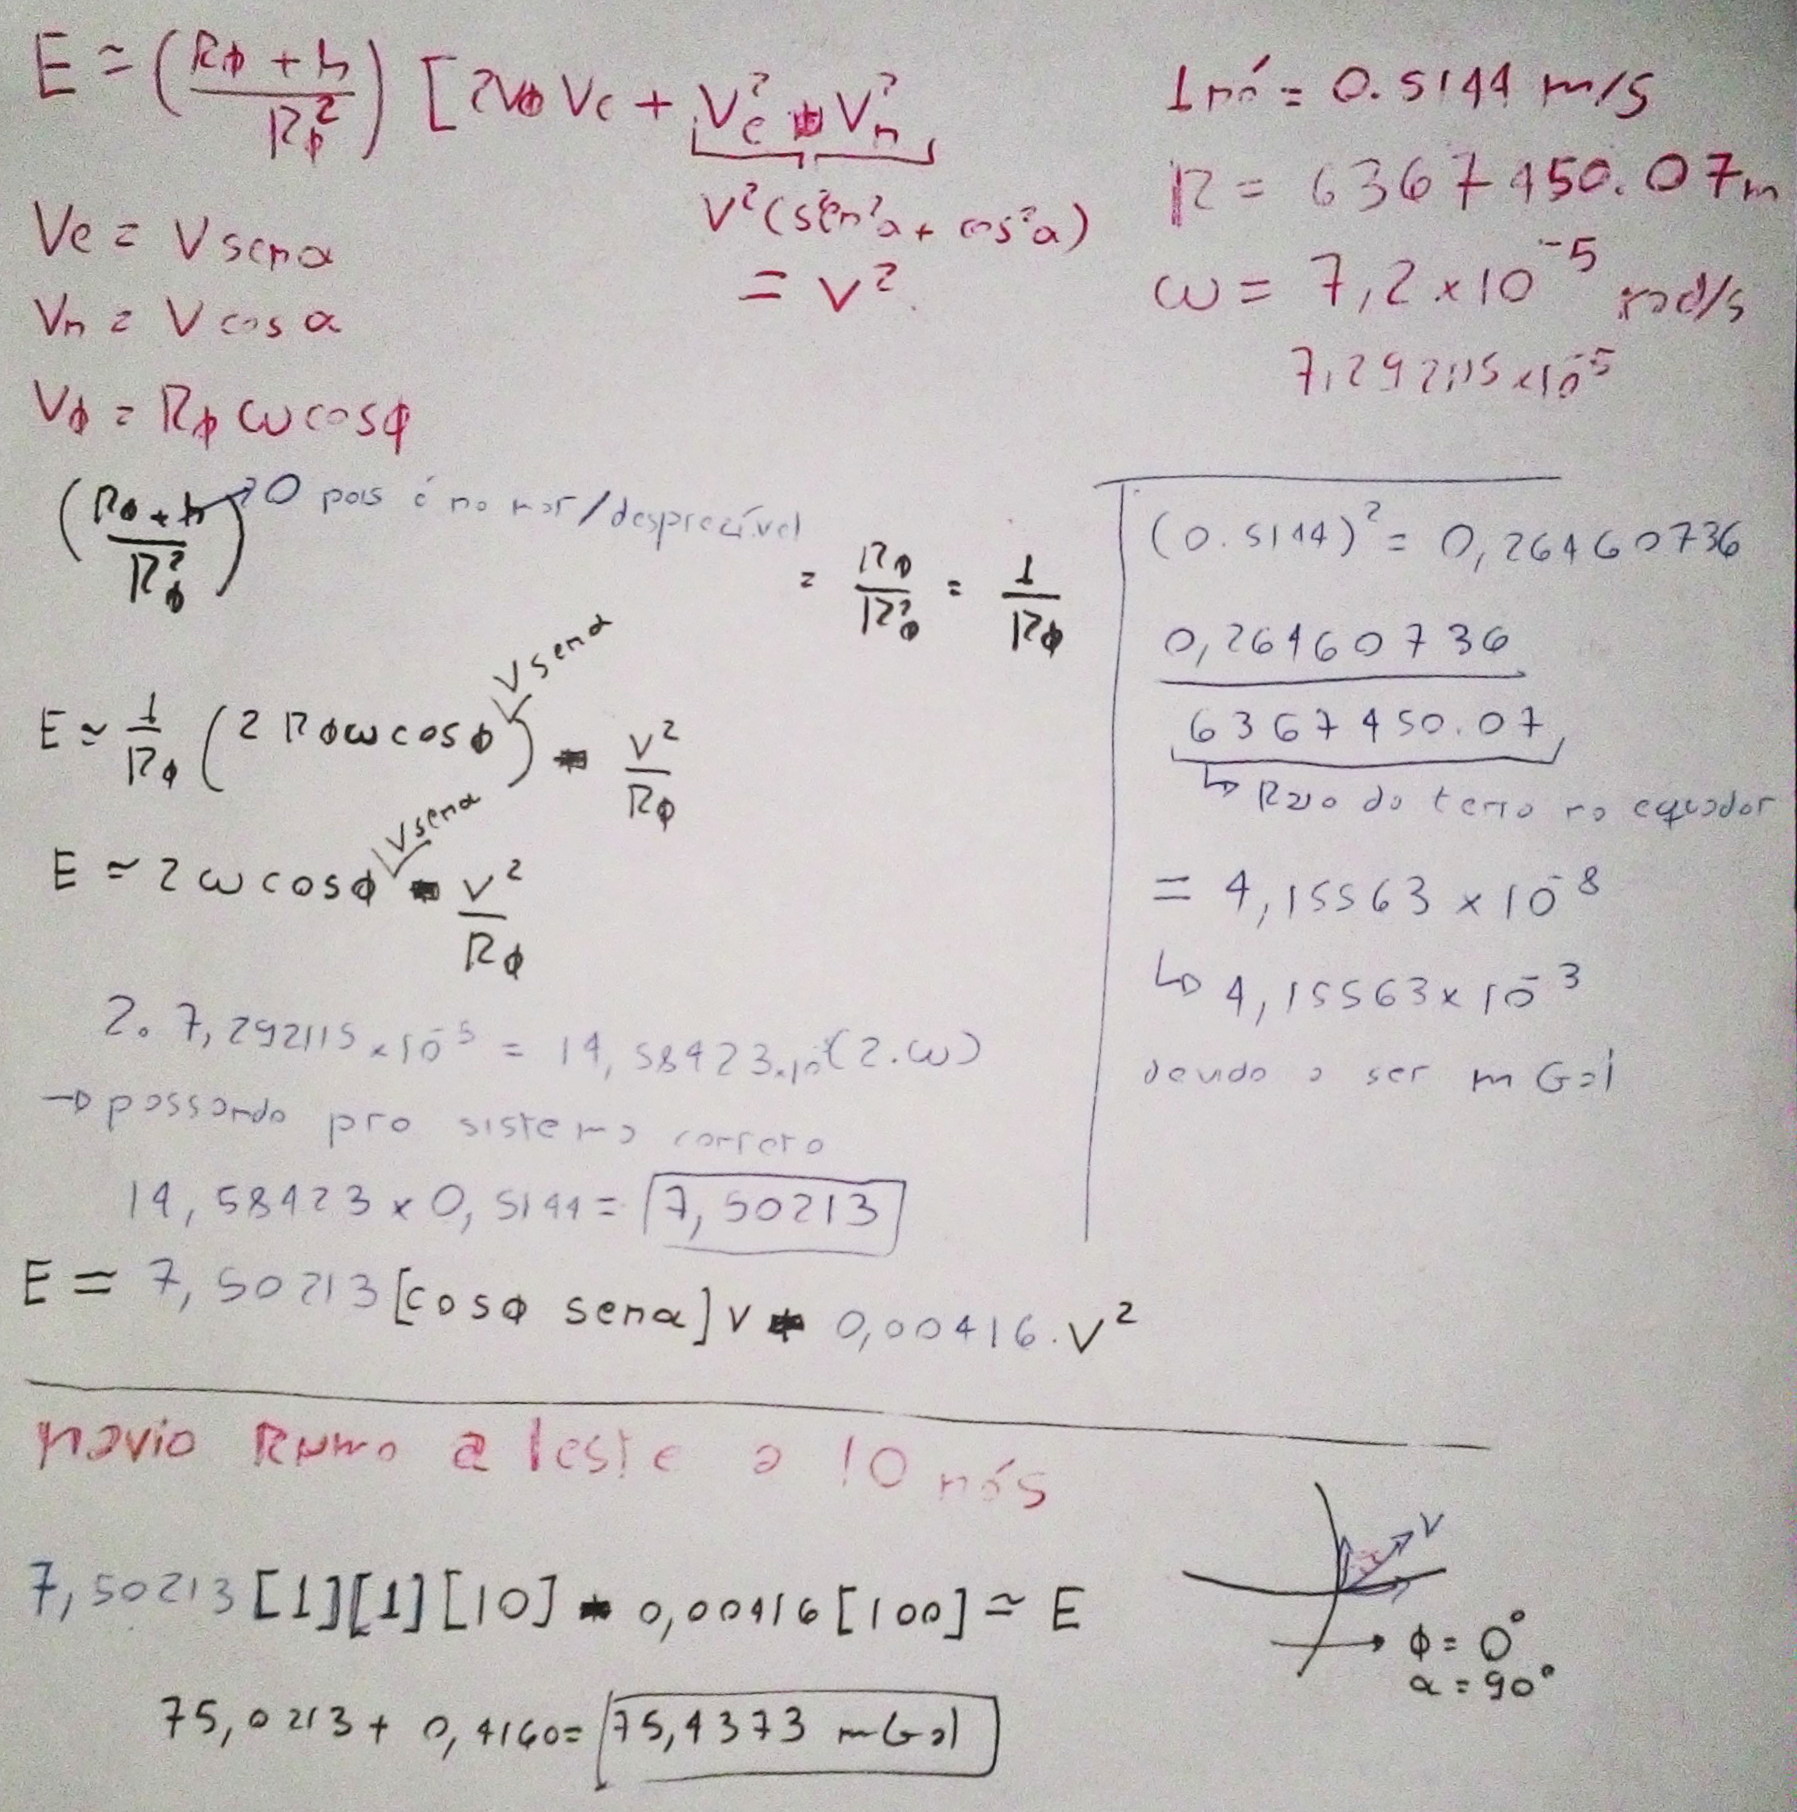 E ≃ (Rϕ + h / Rϕ²) [2Vϕ Ve + Ve² + Vn²
V²(sen²α + cos²α)
= V²
Ve = V senα
Vn = V cosα
Vϕ = Rϕ ω cosϕ
1 nó = 0.5144 m/s
R = 6367450.07m
ω = 7,2 x 10⁻⁵ rad/s
7,292115 x10⁻⁵
(Rϕ + h / Rϕ²) → 0 pois é no mar/desprezível
= Rϕ / Rϕ² = 1 / Rϕ
E ≃ 1/Rϕ (2 Rϕ ω cosϕ V senα) + V²/Rϕ
E ≃ 2 ω cosϕ V senα + V²/Rϕ
2. 7,292115 x10⁻⁵ = 14,58423.10⁻⁵ (2.ω)
→ passando pro sistema correto
14,58423 x 0,5144 = 7,50213
E = 7,50213 [cosϕ senα] V + 0,00416. V²
(0.5144)² = 0,26460736
0,26460736
6367450.07
↳ Raio da terra no equador
= 4,15563 x 10⁻⁸
↳ 4,15563 x 10⁻³
devido a ser mGal
navio Rumo a leste a 10 nós
7,50213 [1][1][10] + 0,00416 [100] ≃ E
75,0213 + 0,4160 = 75,4373 mGal
V
ϕ = 0°
α = 90°